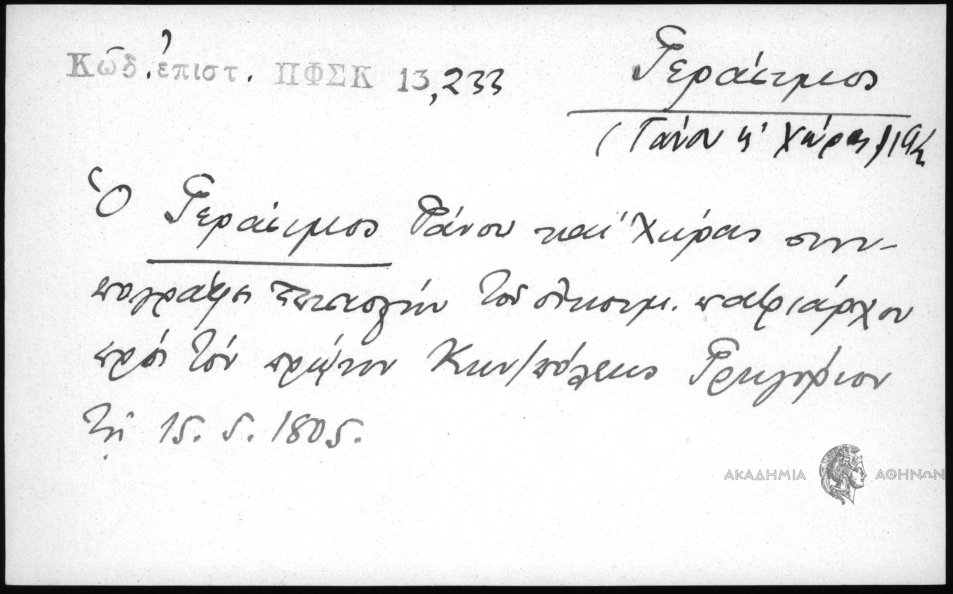 Κῶδ. ἐπιστ. ΠΦΣΚ 13,233
Γεράσιμος
(Γάνου κ' Χώρας)
Ὁ Γεράσιμος Γάνου καὶ Χώρας συνυ-
πογράφει ἐπιστολὴν τοῦ οἰκουμ. πατριάρχου
πρὸς τὸν πρώην Κων/πόλεως Γρηγόριον
τῇ 15. 5. 1805.
ΑΚΑΔΗΜΙΑ ΑΘΗΝΩΝ